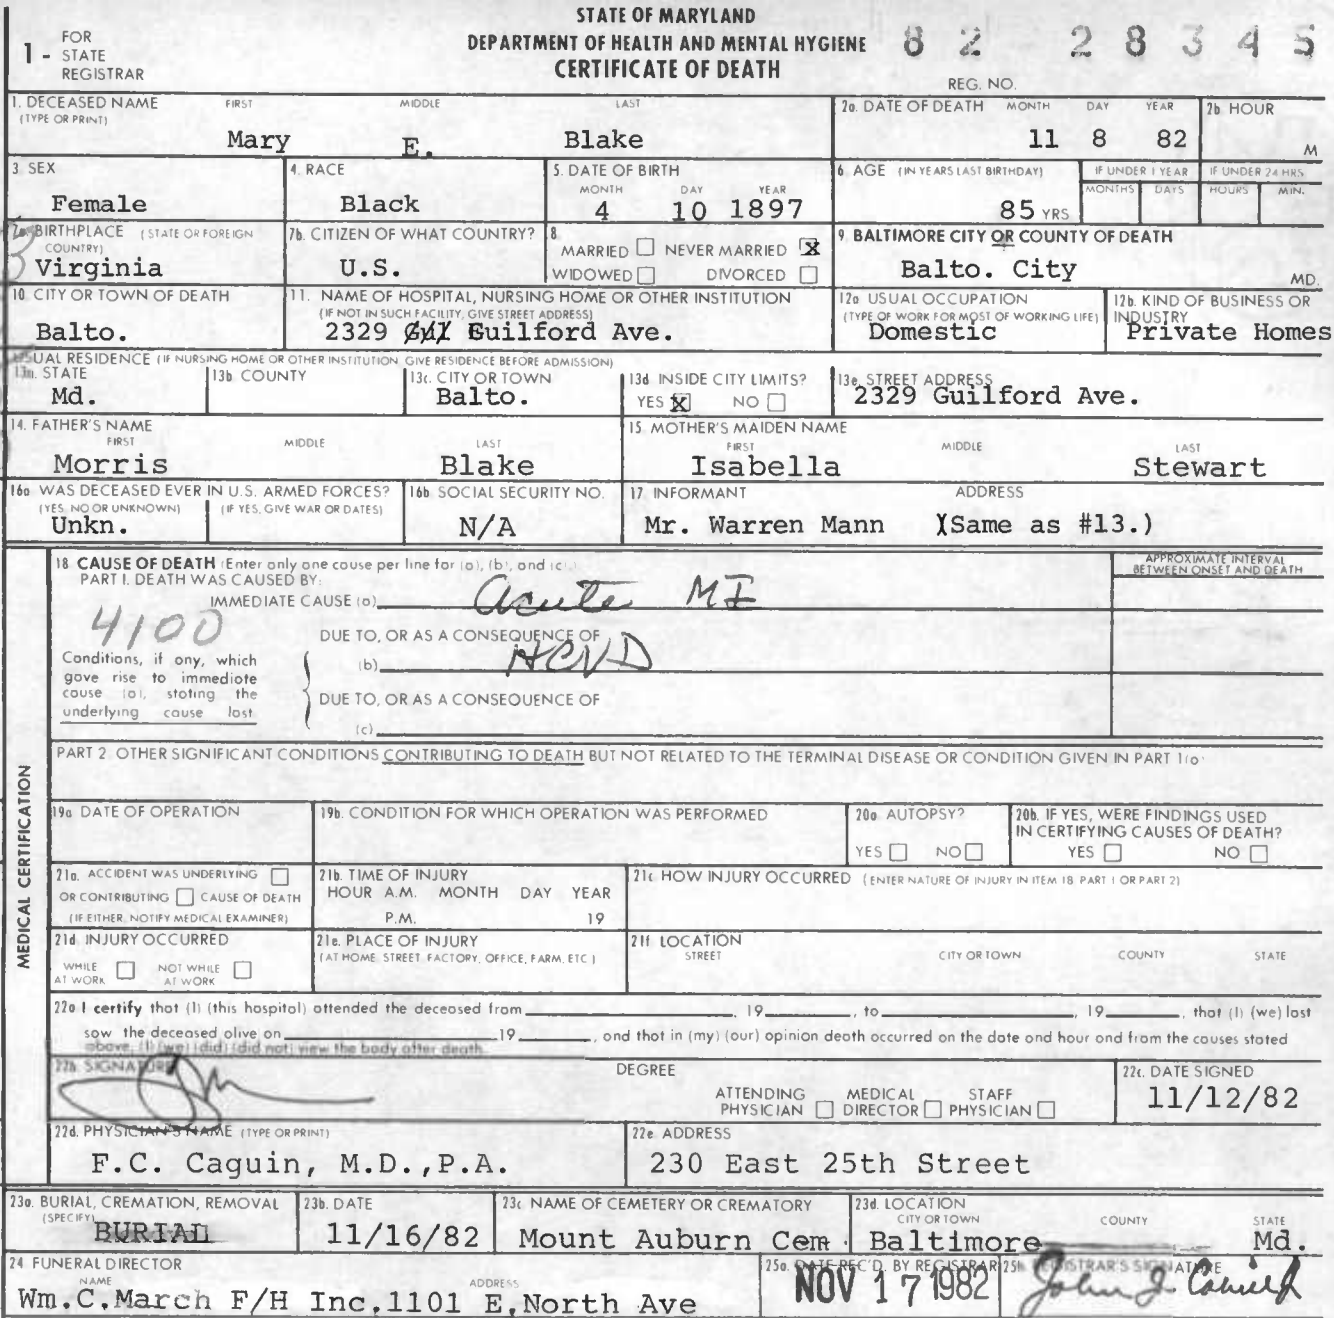 1 - FOR STATE REGISTRAR
STATE OF MARYLAND
DEPARTMENT OF HEALTH AND MENTAL HYGIENE
CERTIFICATE OF DEATH
82 28345
REG. NO.
1. DECEASED NAME (TYPE OR PRINT) FIRST MIDDLE LAST
Mary E. Blake
2a. DATE OF DEATH MONTH DAY YEAR
11 8 82
2b. HOUR
M
3. SEX
Female
4. RACE
Black
5. DATE OF BIRTH MONTH DAY YEAR
4 10 1897
6. AGE (IN YEARS LAST BIRTHDAY)
85 YRS
IF UNDER 1 YEAR MONTHS DAYS
IF UNDER 24 HRS. HOURS MIN.
7a. BIRTHPLACE (STATE OR FOREIGN COUNTRY)
Virginia
7b. CITIZEN OF WHAT COUNTRY?
U.S.
8. MARRIED ☐ NEVER MARRIED ☒
WIDOWED ☐ DIVORCED ☐
9. BALTIMORE CITY OR COUNTY OF DEATH
Balto. City MD.
10. CITY OR TOWN OF DEATH
Balto.
11. NAME OF HOSPITAL, NURSING HOME OR OTHER INSTITUTION
(IF NOT IN SUCH FACILITY, GIVE STREET ADDRESS)
2329 Guilford Ave.
12a. USUAL OCCUPATION
(TYPE OF WORK FOR MOST OF WORKING LIFE)
Domestic
12b. KIND OF BUSINESS OR INDUSTRY
Private Homes
USUAL RESIDENCE (IF NURSING HOME OR OTHER INSTITUTION GIVE RESIDENCE BEFORE ADMISSION)
13a. STATE
Md.
13b. COUNTY
13c. CITY OR TOWN
Balto.
13d. INSIDE CITY LIMITS?
YES ☒ NO ☐
13e. STREET ADDRESS
2329 Guilford Ave.
14. FATHER'S NAME
FIRST MIDDLE LAST
Morris Blake
15. MOTHER'S MAIDEN NAME
FIRST MIDDLE LAST
Isabella Stewart
16a. WAS DECEASED EVER IN U.S. ARMED FORCES?
(YES, NO OR UNKNOWN) (IF YES, GIVE WAR OR DATES)
Unkn.
16b. SOCIAL SECURITY NO.
N/A
17. INFORMANT ADDRESS
Mr. Warren Mann (Same as #13.)
MEDICAL CERTIFICATION
18. CAUSE OF DEATH (Enter only one cause per line for (a), (b), and (c).)
APPROXIMATE INTERVAL BETWEEN ONSET AND DEATH
PART I. DEATH WAS CAUSED BY:
IMMEDIATE CAUSE (a) Acute MI
4100
DUE TO, OR AS A CONSEQUENCE OF
(b) HCVD
Conditions, if any, which gave rise to immediate cause (a), stating the underlying cause last
DUE TO, OR AS A CONSEQUENCE OF
(c)
PART 2. OTHER SIGNIFICANT CONDITIONS CONTRIBUTING TO DEATH BUT NOT RELATED TO THE TERMINAL DISEASE OR CONDITION GIVEN IN PART 1(a)
19a. DATE OF OPERATION
19b. CONDITION FOR WHICH OPERATION WAS PERFORMED
20a. AUTOPSY?
YES ☐ NO ☐
20b. IF YES, WERE FINDINGS USED IN CERTIFYING CAUSES OF DEATH?
YES ☐ NO ☐
21a. ACCIDENT WAS UNDERLYING ☐
OR CONTRIBUTING ☐ CAUSE OF DEATH
(IF EITHER, NOTIFY MEDICAL EXAMINER)
21b. TIME OF INJURY
HOUR A.M. MONTH DAY YEAR
P.M. 19
21c. HOW INJURY OCCURRED (ENTER NATURE OF INJURY IN ITEM 18 PART 1 OR PART 2)
21d. INJURY OCCURRED
WHILE AT WORK ☐ NOT WHILE AT WORK ☐
21e. PLACE OF INJURY
(AT HOME, STREET, FACTORY, OFFICE, FARM, ETC.)
21f. LOCATION
STREET CITY OR TOWN COUNTY STATE
22a. I certify that (I) (this hospital) attended the deceased from , 19 , to , 19 , that (I) (we) last
saw the deceased alive on 19 , and that in (my) (our) opinion death occurred on the date and hour and from the causes stated
above, (I) (we) (did) (did not) view the body after death.
22b. SIGNATURE
DEGREE
ATTENDING PHYSICIAN ☐ MEDICAL DIRECTOR ☐ STAFF PHYSICIAN ☐
22c. DATE SIGNED
11/12/82
22d. PHYSICIAN'S NAME (TYPE OR PRINT)
F.C. Caguin, M.D.,P.A.
22e. ADDRESS
230 East 25th Street
23a. BURIAL, CREMATION, REMOVAL (SPECIFY)
BURIAL
23b. DATE
11/16/82
23c. NAME OF CEMETERY OR CREMATORY
Mount Auburn Cem.
23d. LOCATION
CITY OR TOWN COUNTY STATE
Baltimore Md.
24. FUNERAL DIRECTOR
NAME ADDRESS
Wm.C.March F/H Inc.1101 E.North Ave
25a. DATE REC'D. BY REGISTRAR
NOV 17 1982
25b. REGISTRAR'S SIGNATURE
John J.